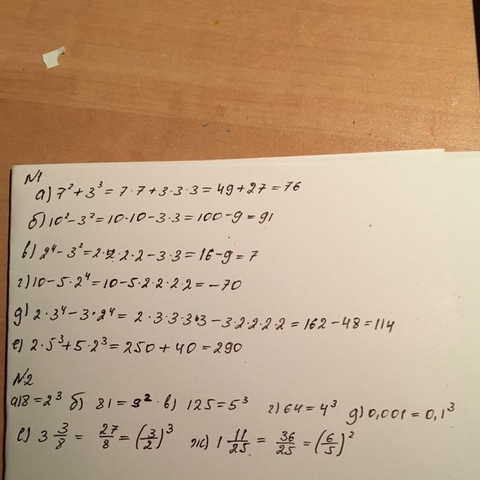 №1
а) 7² + 3³ = 7·7 + 3·3·3 = 49 + 27 = 76
б) 10² - 3² = 10·10 - 3·3 = 100 - 9 = 91
в) 2⁴ - 3² = 2·2·2·2 - 3·3 = 16 - 9 = 7
г) 10 - 5·2⁴ = 10 - 5·2·2·2·2 = -70
д) 2·3⁴ - 3·2⁴ = 2·3·3·3·3 - 3·2·2·2·2 = 162 - 48 = 114
е) 2·5³ + 5·2³ = 250 + 40 = 290
№2
а) 8 = 2³ б) 81 = 9² · в) 125 = 5³ г) 64 = 4³ д) 0,001 = 0,1³
е) 3 3/8 = 27/8 = (3/2)³ ж) 1 11/25 = 36/25 = (6/5)²